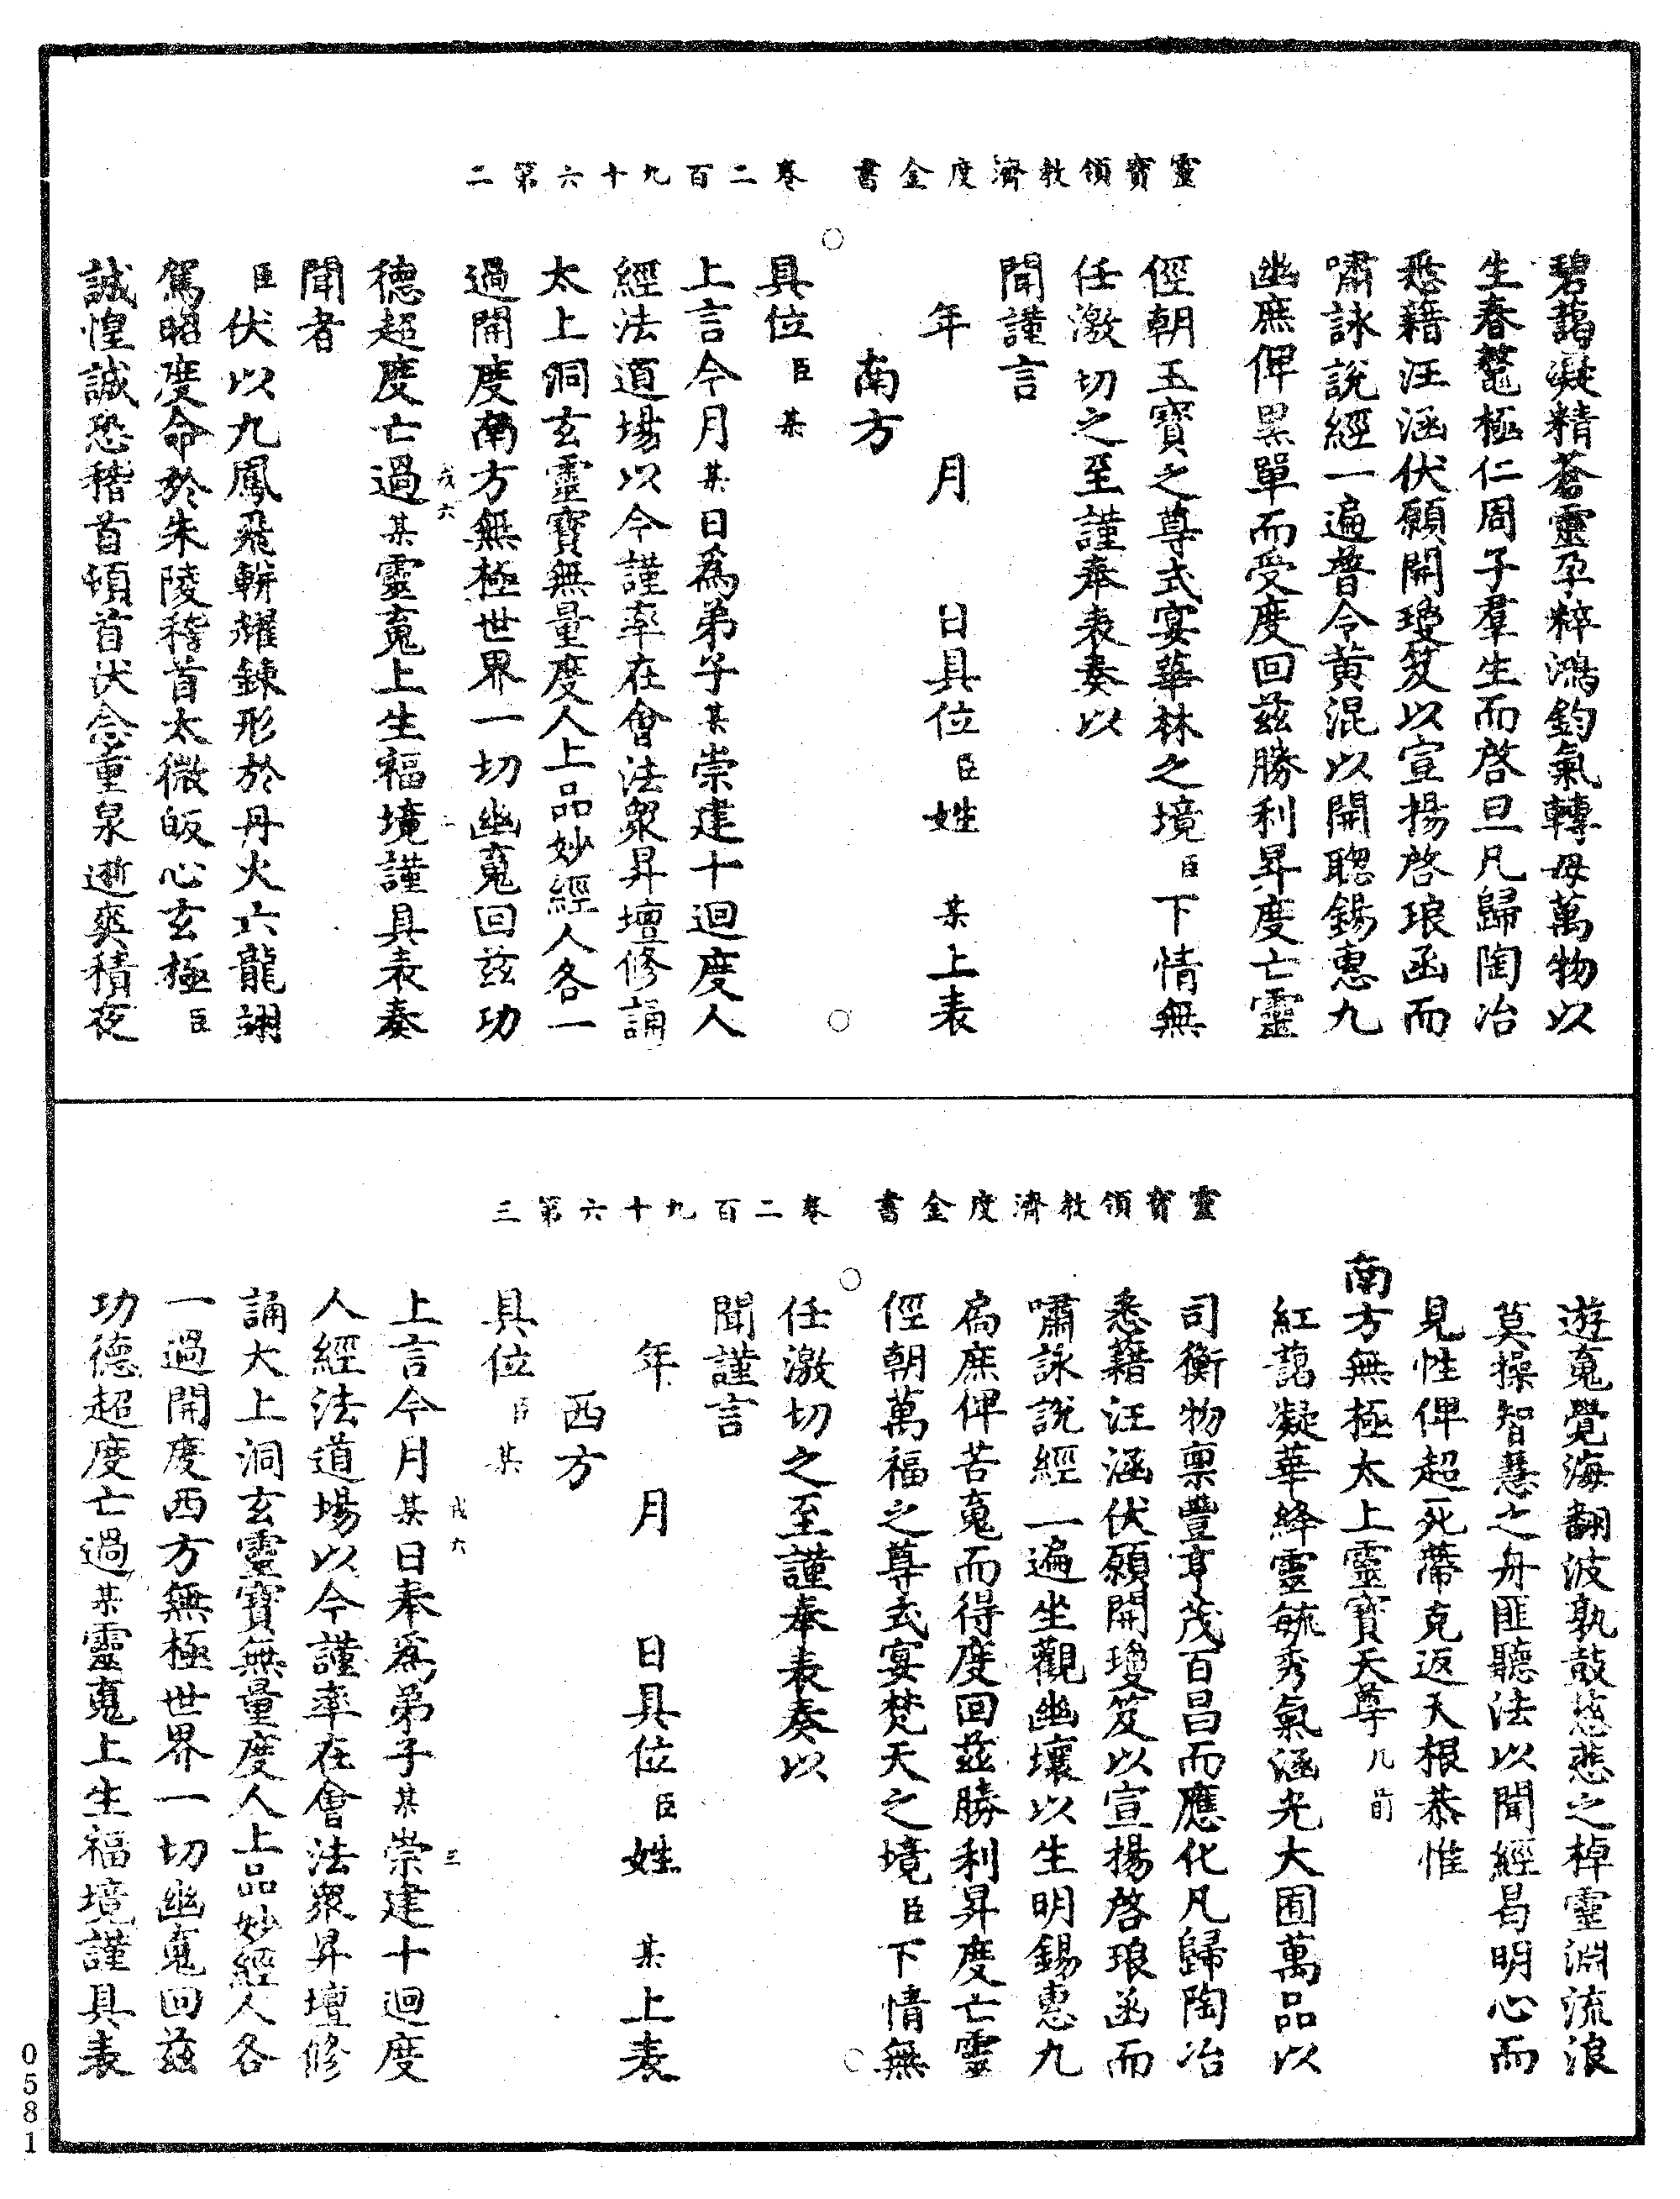 靈寶領教濟度金書　卷二百九十六第二
碧藹凝精蒼靈孕粹鴻鈞氣轉母萬物以
生春鼇極仁周子羣生而啓旦凡歸陶冶
悉藉汪涵伏願開瓊笈以宣揚啓琅函而
嘯詠說經一遍普令黃混以開聰錫惠九
幽庶俾㷀單而受度回兹勝利昇度亡靈
俓朝玉寶之尊式宴華林之境臣下情無
任激切之至謹奉表奏以
聞謹言
年　月　日具位臣姓　某上表
南方
具位臣某
上言今月某日爲弟子某崇建十迴度人
經法道場以今謹率在會法眾昇壇修誦
太上洞玄靈寶無量度人上品妙經人各一
過開度南方無極世界一切幽䰟回兹功
德超度亡過某靈䰟上生福境謹具表奏
戎六　二
聞者
臣伏以九鳳飛輧耀鍊形於丹火六龍翊
駕昭度命於朱陵稽首太微皈心玄極臣
誠惶誠恐稽首頓首伏念重泉逝爽積夜
靈寶領教濟度金書　卷二百九十六第三
遊䰟覺海翻波孰鼓慈悲之棹靈淵流浪
莫操智慧之舟匪聽法以聞經曷明心而
見性俾超死蔕克返天根恭惟
南方無極太上靈寶天尊几前
紅藹凝華絳靈毓秀氣涵光大囿萬品以
司衡物禀豐亨茂百昌而應化凡歸陶冶
悉藉汪涵伏願開瓊笈以宣揚啓琅函而
嘯詠說經一遍坐觀幽壤以生明錫惠九
扃庶俾苦䰟而得度回兹勝利昇度亡靈
俓朝萬福之尊式宴梵天之境臣下情無
任激切之至謹奉表奏以
聞謹言
年　月　日具位臣姓　某上表
西方
具位臣某
戎六　三
上言今月某日奉爲弟子某崇建十迴度
人經法道場以今謹率在會法眾昇壇修
誦大上洞玄靈寶無量度人上品妙經人各
一過開度西方無極世界一切幽䰟回兹
功德超度亡過某靈䰟上生福境謹具表
0581